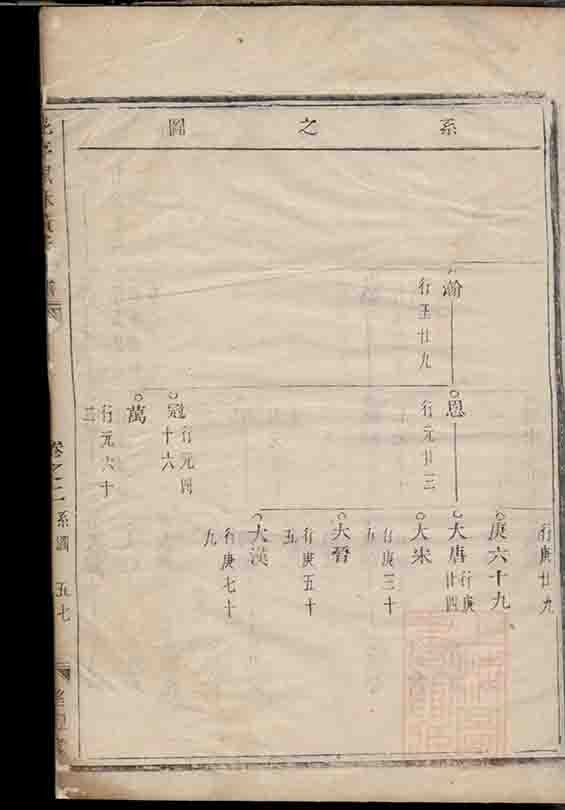 系之圖
瀚
行玉廿九
恩
行元廿三
冠
行元四十六
萬
行元六十三
行庚廿九
庚六十九
大唐
行庚廿四
大宋
行庚三十五
大晉
行庚五十五
大漢
行庚七十九
卷之二
系圖
五七